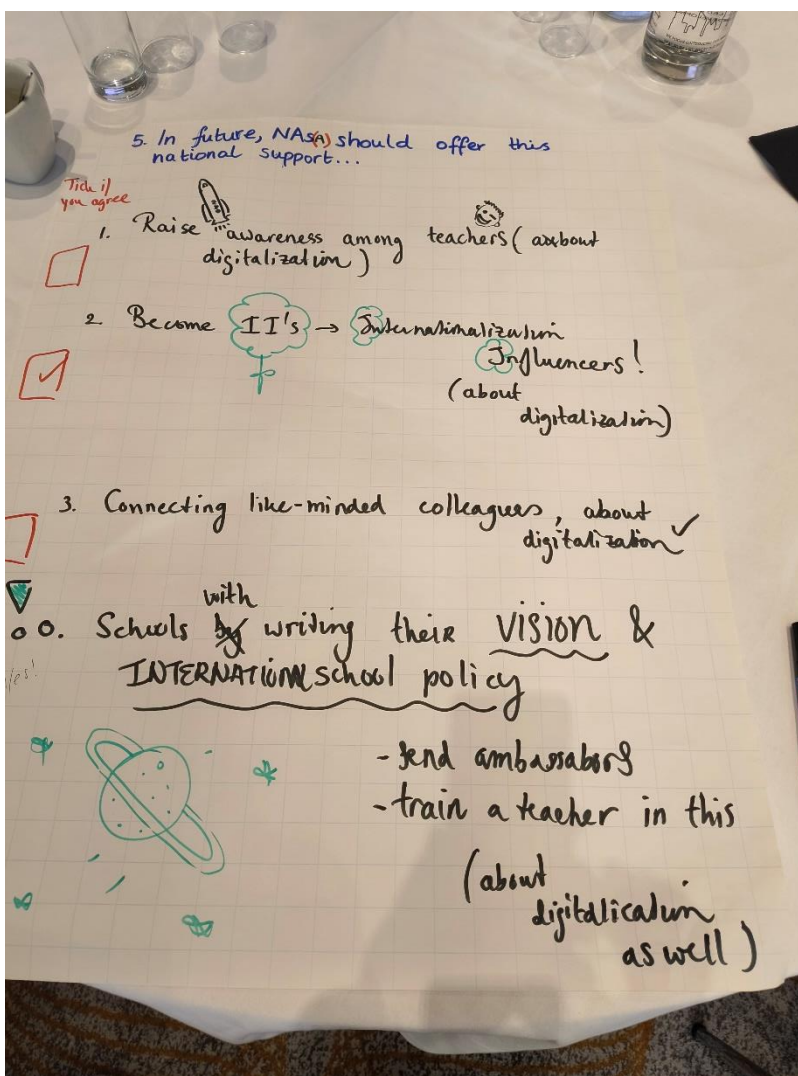 5. In future, NAs(A) should offer this
national support...
Tick if
you agree
1. Raise awareness among teachers (about
digitalization)
2. Become II's → Internationalization
Influencers!
(about
digitalization)
3. Connecting like-minded colleagues, about
digitalization ✓
with
o o. Schools by writing their VISION &
INTERNATIONAL school policy
Yes!
- send ambassabors
- train a teacher in this
(about
digitalication
as well)